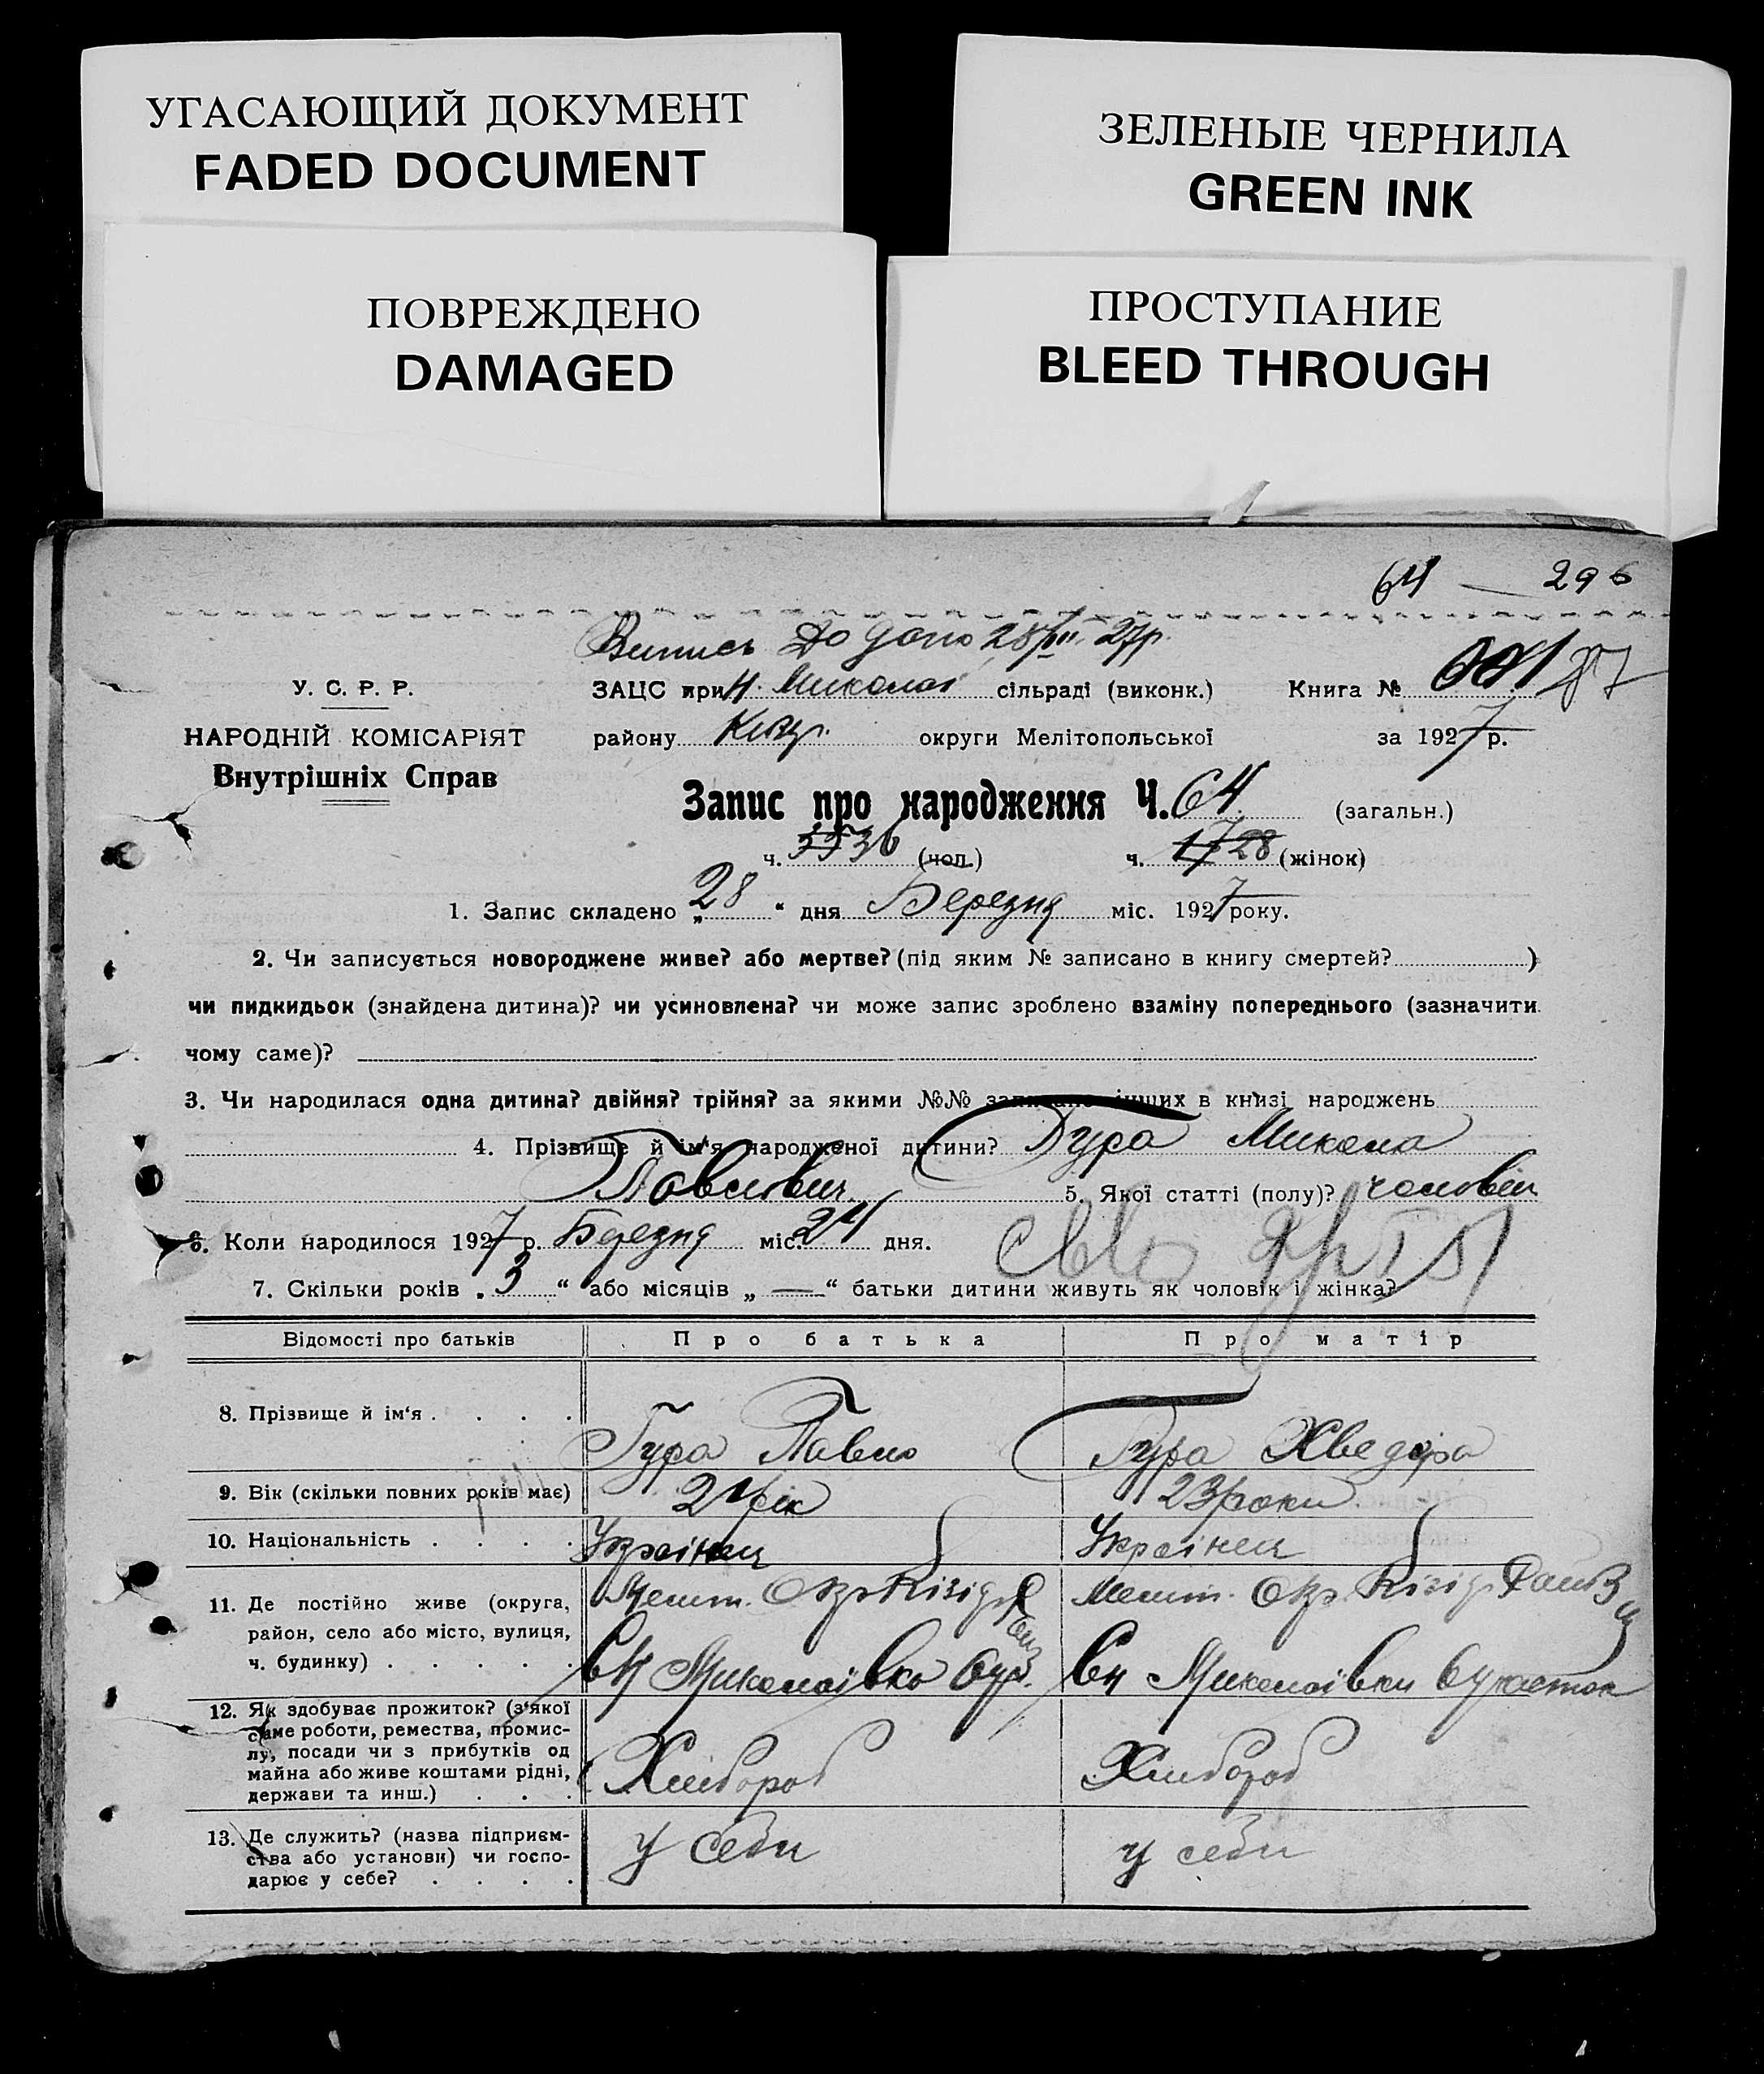 УГАСАЮЩИЙ ДОКУМЕНТ
FADED DOCUMENT
ЗЕЛЕНЫЕ ЧЕРНИЛА
GREEN INK
ПОВРЕЖДЕНО
DAMAGED
ПРОСТУПАНИЕ
BLEED THROUGH
64 — 296
Випись 28/III 27р.
У. С. Р. Р.
НАРОДНІЙ КОМІСАРІЯТ
Внутрішніх Справ
ЗАЦС при Н. Миколаї сільраді (виконк.) Книга №
району округи Мелітопольської за 1927 р.
Запис про народження Ч. 64 (загальн.)
ч. 36 (чол.) ч. 28 (жінок)
1. Запис складено „28“ дня Березня міс. 1927 року.
2. Чи записується новороджене живе? або мертве? (під яким № записано в книгу смертей? )
чи пидкидьок (знайдена дитина)? чи усиновлена? чи може запис зроблено взаміну попереднього (зазначити
чому саме)?
3. Чи народилася одна дитина? двійня? трійня? за якими №№ записано інших в книзі народжень
4. Прізвище й ім'я народженої дитини? Гура Микола
Павлович 5. Якої статті (полу)? чоловік
6. Коли народилося 1927 р. Березня міс. 24 дня.
7. Скільки років „3“ або місяців „—“ батьки дитини живуть як чоловік і жінка?
Відомості про батьків Про батька Про матір
8. Прізвище й ім'я . . . . Гура Павло Гура Хведора
9. Вік (скільки повних років має) 24 рік 23 роки
10. Національність . . . . Українец Українец
11. Де постійно живе (округа,
район, село або місто, вулиця,
ч. будинку) . . . . .
Мелит. Окр. Мелит. Окр.
Миколаївка Миколаївки
12. Як здобуває прожиток? (з'якої
саме роботи, ремества, промис-
лу, посади чи з прибутків од
майна або живе коштами рідні,
держави та инш.) . . .
Хлибороб Хлибороб
13. Де служить? (назва підприєм-
ства або установи) чи госпо-
дарює у себе? . . . .
у себи у себи